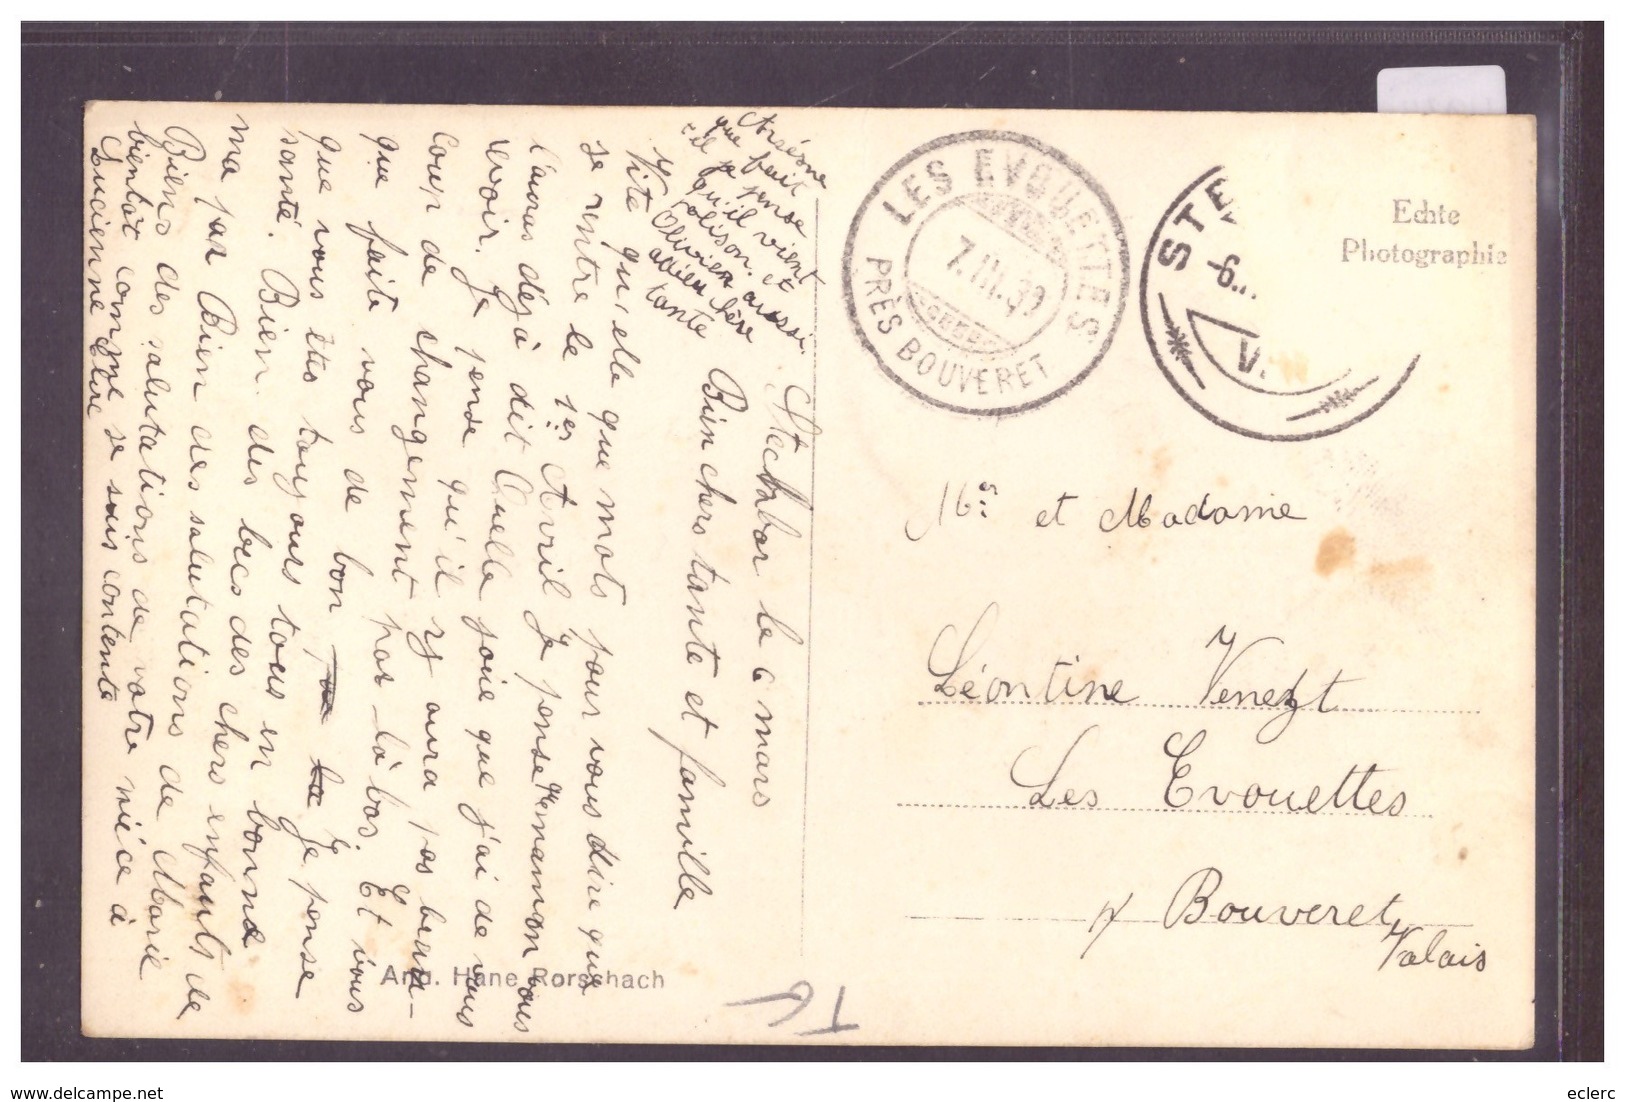 Steckbor le 6 mars
Bien chers tante et famille
Vite qu'elle que mots pour vous dire que
je rentre le 1er Avril Je pense Memamon vous
l'aures déjà dit Quelle joie que j'ai de vous
revoir. Je pense qu'il ry aura pas beau-
coup de changement par là bas. Et vous
que faite vous de bon Je pense
que vous êtes toujours tous en bonne
santé. Bien des becs des chers enfants de
ma par Bien des salutations de Marie
Biens des salutations de votre nièce à
bientôt comme je suis contente
Lucienne Clerc
Arsène
que fait
t-il je pense
qu'il vient
polison. et
Olivier aussi
adieu chère
tante
Ant. Hane Rorschach
LES EVOUETTES
7.III.39
PRÈS BOUVERET
STE
-6...
V.
Echte
Photographie
Mr. et Madame
Léontine Venezt
Les Evouettes
p/ Bouveret
Valais
TG
www.delcampe.net
eclerc